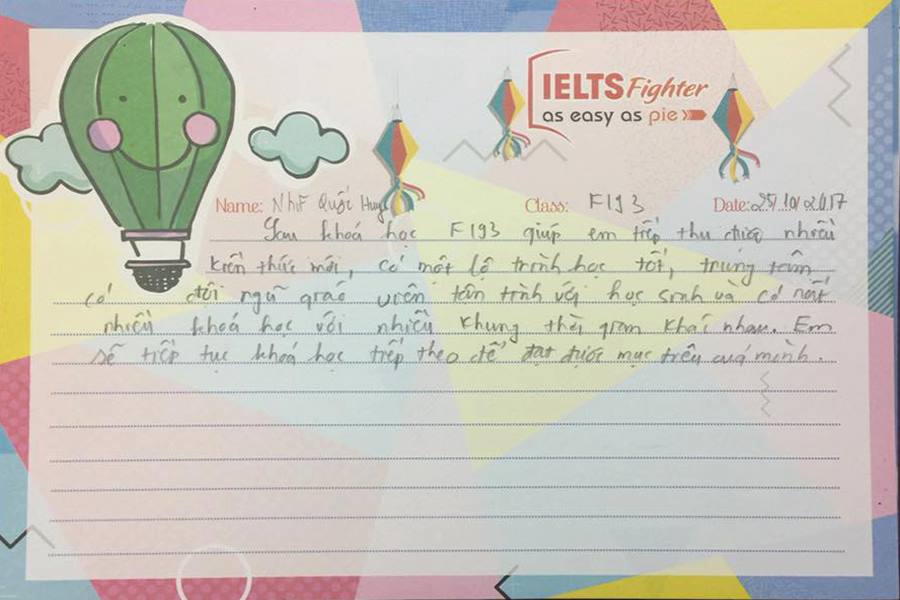 IELTS Fighter
as easy as pie
Name: Quốc Huy Class: F193 Date: 25/10/2017
Sau khoá học F193 giúp em tiếp thu được nhiều
kiến thức mới, có một lộ trình học tốt, trung tâm
có đội ngũ giáo viên tận tình với học sinh và có rất
nhiều khoá học với nhiều khung thời gian khác nhau. Em
sẽ tiếp tục khoá học tiếp theo để đạt được mục trêu cuả mình.